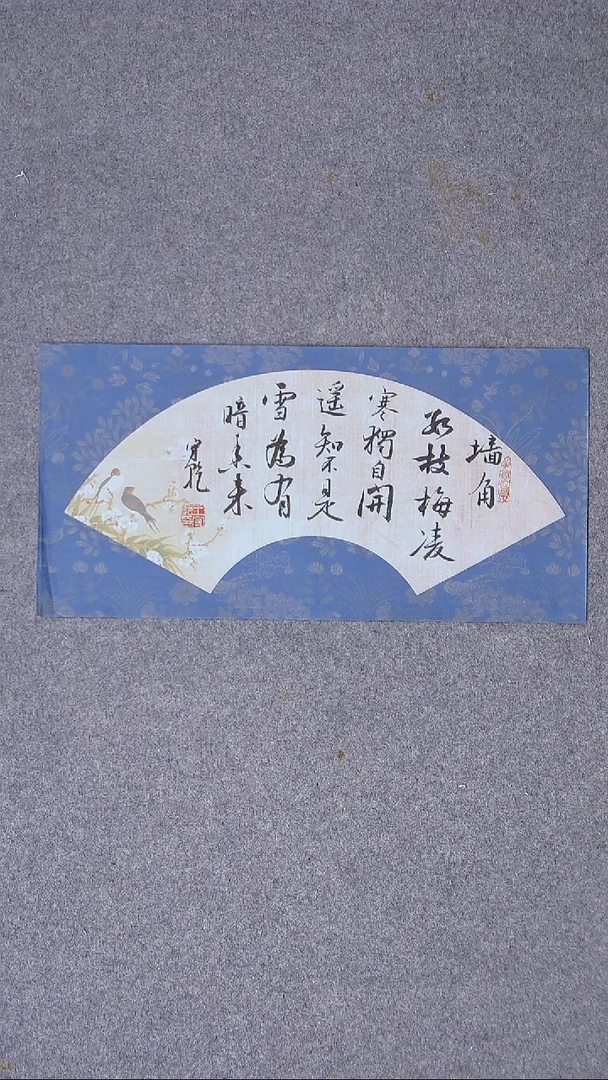 墙角
数枝梅凌
寒獨自開
遥知不是
雪為有
暗香来